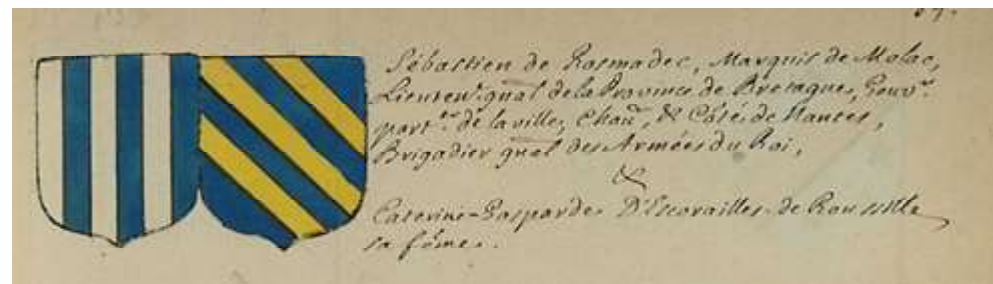 Sébastien de Rosmadec, Marquis de Molac,
Lieuten.t gnal de la Province de Bretagne, Gouv.r
part.er de la ville, Chau, & Côté de Nantes,
Brigadier gnal des Armées du Roi,
&
Caterine-Gasparde D'Escorailles de Roussille
sa fẽme.